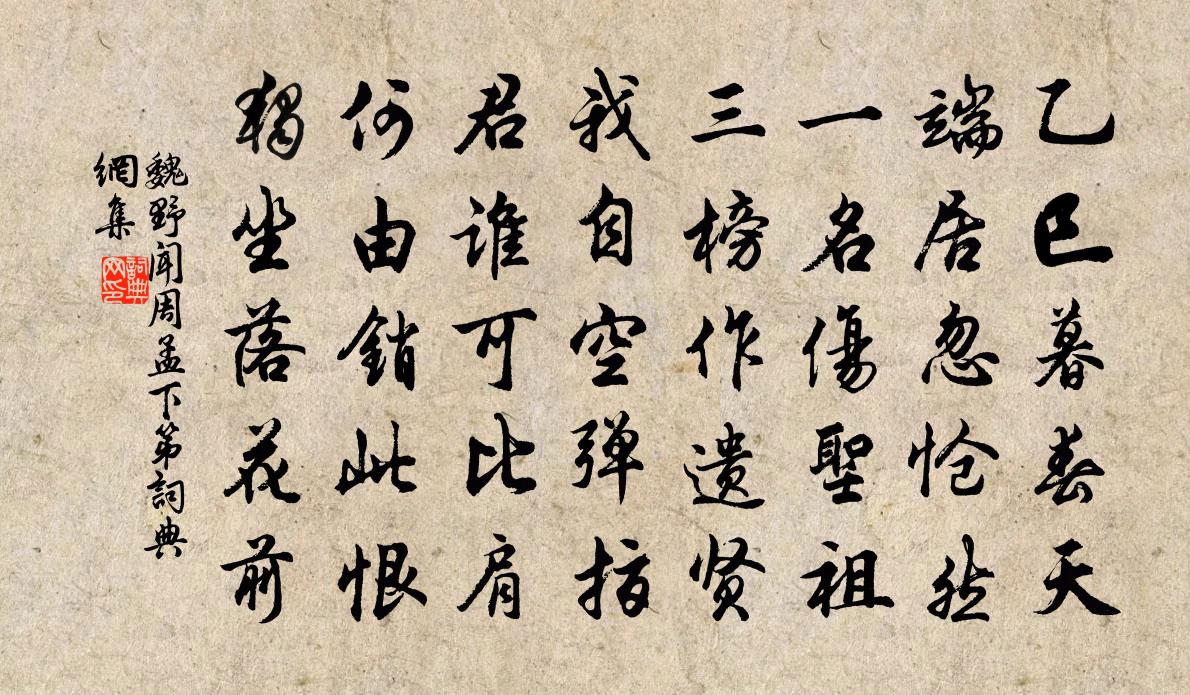 乙巳暮春天
端居忽怆然
一名傷聖祖
三榜作遗贤
我自空弹指
君谁可比肩
何由銷此恨
獨坐落花前
魏野闻周孟下第詞典
網集
詞典
网印